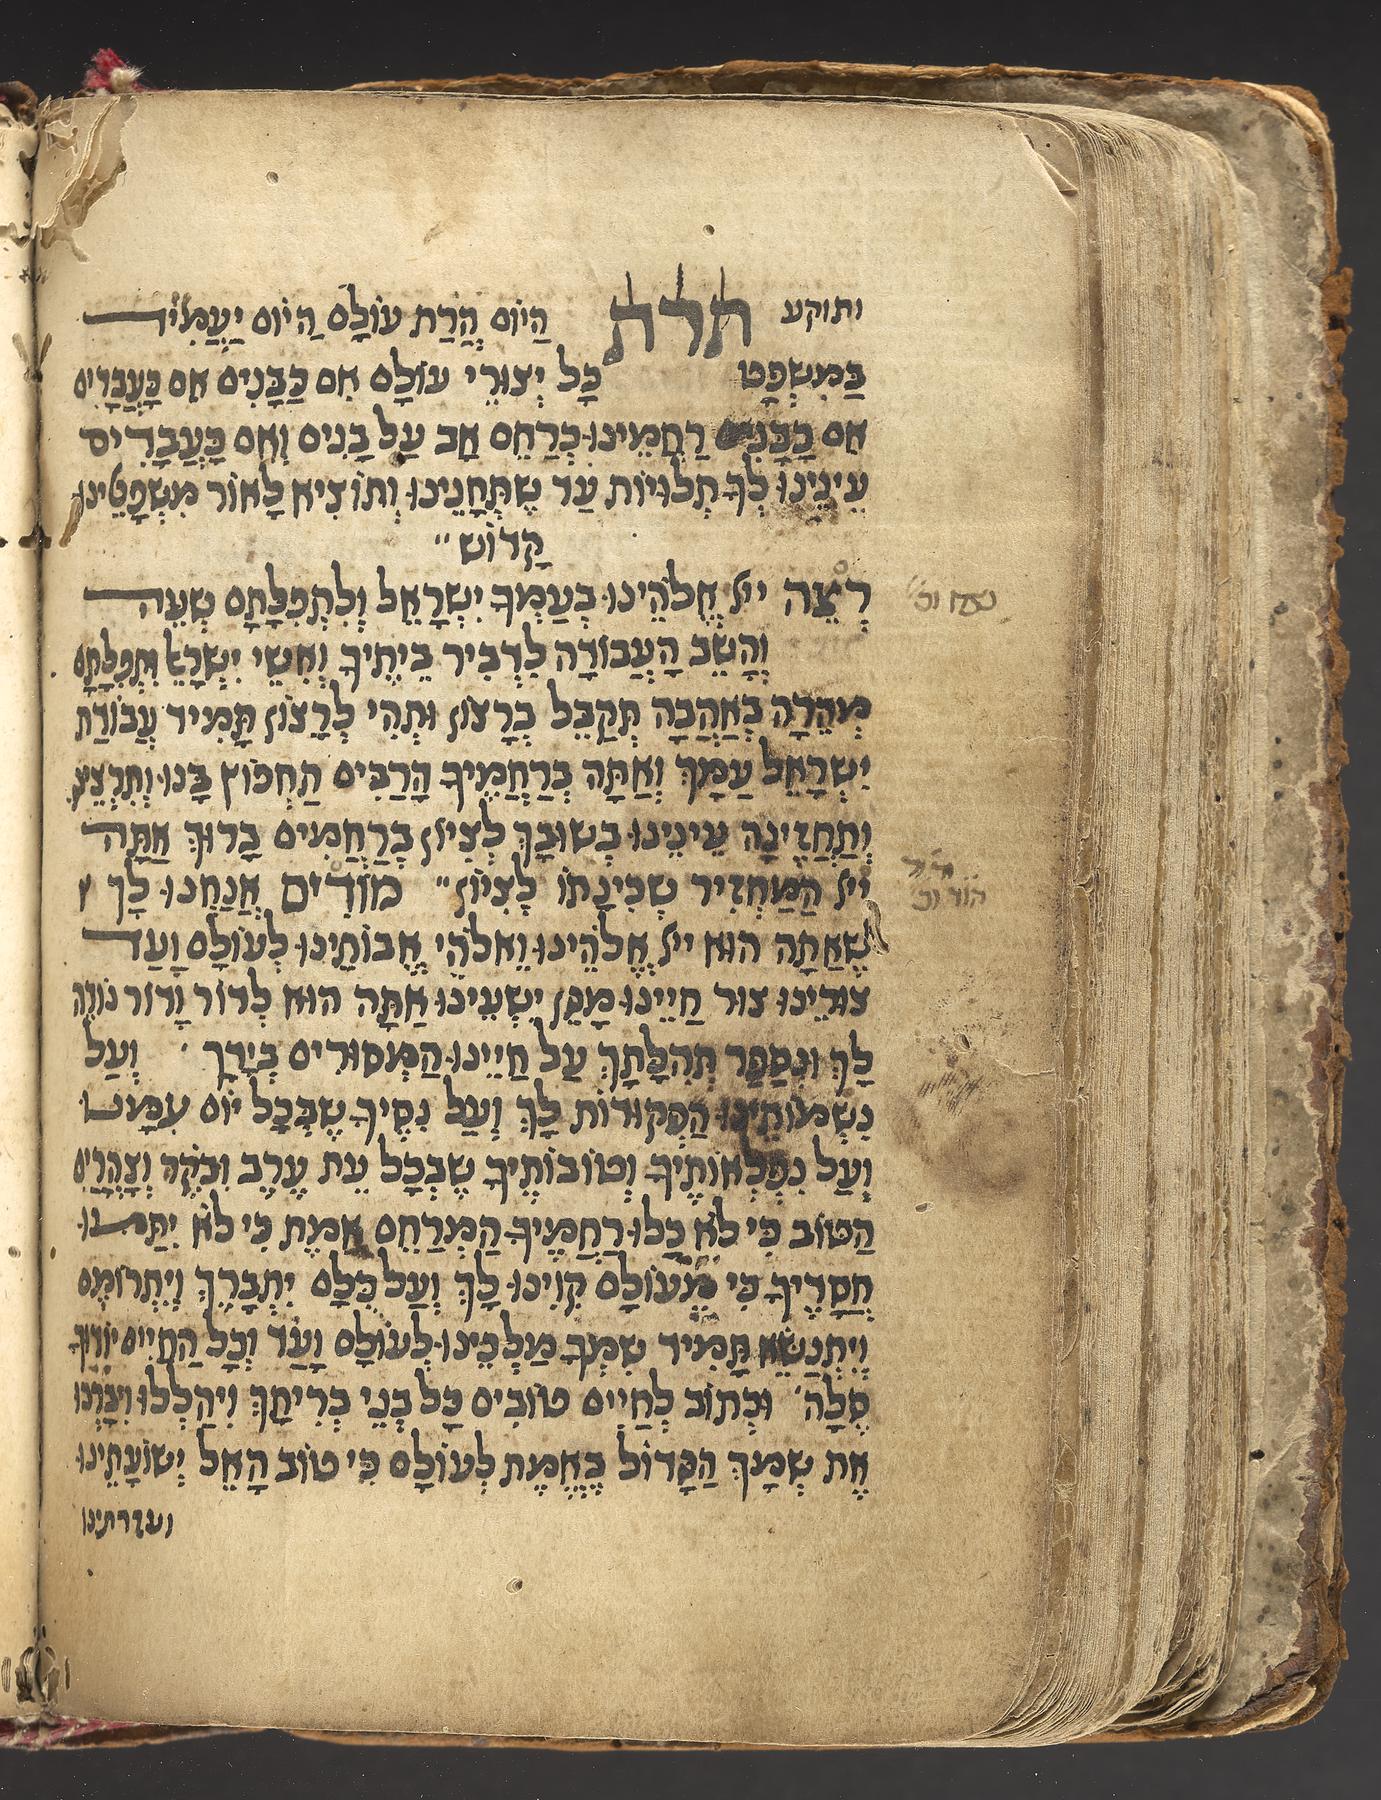 ותוקע תרת הַיּוֹם הֲרַת עוֹלָם הַיּוֹם יַעֲמִיד
בַּמִּשְׁפָּט כָּל יְצוּרֵי עוֹלָם אִם כַּבָּנִים אִם כַּעֲבָדִים
אִם כַּבָּנִים רַחֲמֵינוּ כְּרַחֵם אָב עַל בָּנִים וְאִם כַּעֲבָדִים
עֵינֵינוּ לְךָ תְלוּיוֹת עַד שֶׁתְּחָנֵינוּ וְתוֹצִיא לָאוֹר מִשְׁפָּטֵינוּ
קָדוֹשׁ״
רְצֵה ייי אֱלֹהֵינוּ בְּעַמְּךָ יִשְׂרָאֵל וְלִתְפִלָּתָם שְׁעֵה
וְהָשֵׁב הָעֲבוֹדָה לִדְבִיר בֵּיתֶיךָ וְאִשֵּׁי יִשְׂרָאֵל וּתְפִלָּתָם
מְהֵרָה בְּאַהֲבָה תְּקַבֵּל בְּרָצוֹן וּתְהִי לְרָצוֹן תָּמִיד עֲבוֹדַת
יִשְׂרָאֵל עַמָּךְ וְאַתָּה בְּרַחֲמֶיךָ הָרַבִּים תַּחְפּוֹץ בָּנוּ וְתִרְצֵינוּ
וְתַחֲזֶינָה עֵינֵינוּ בְּשׁוּבָךְ לְצִיּוֹן בְּרַחֲמִים בָּרוּךְ אַתָּה
ייי הַמַּחְזִיר שְׁכִינָתוֹ לְצִיּוֹן״ מוֹדִים אֲנַחְנוּ לָךְ
שֶׁאַתָּה הוּא ייי אֱלֹהֵינוּ וֵאלֹהֵי אֲבוֹתֵינוּ לְעוֹלָם וָעֶד
צוּרֵינוּ צוּר חַיֵּינוּ מָגֵן יִשְׁעֵינוּ אַתָּה הוּא לְדוֹר וָדוֹר נוֹדֶה
לָךְ וּנְסַפַּר תְּהִלָּתָךְ עַל חַיֵּינוּ הַמְּסוּרִים בְּיָדָךְ וְעַל
נִשְׁמוֹתֵינוּ הַפְּקוּדוֹת לָךְ וְעַל נִסֶּיךָ שֶׁבְּכָל יוֹם עִמָּנוּ
וְעַל נִפְלְאוֹתֶיךָ וְטוֹבוֹתֶיךָ שֶׁבְּכָל עֵת עֶרֶב וּבֹקֶר וְצָהֳרַיִם
הַטּוֹב כִּי לֹא כָלוּ רַחֲמֶיךָ הַמְרַחֵם אֱמֶת כִּי לֹא יִתַּמּוּ
חֲסָדֶיךָ כִּי מֵעוֹלָם קִוִּינוּ לָךְ וְעַל כֻּלָּם יִתְבָּרֵךְ וְיִתְרוֹמֵם
וְיִתְנַשֵּׂא תָּמִיד שִׁמְךָ מַלְכֵּינוּ לְעוֹלָם וָעֶד וְכָל הַחַיִּים יוֹדוּךָ
סֶלָה׳ וּכְתוֹב לְחַיִּים טוֹבִים כָּל בְּנֵי בְרִיתָךְ וִיהַלְלוּ וִיבָרְכוּ
אֶת שְׁמָךְ הַגָּדוֹל בֶּאֱמֶת לְעוֹלָם כִּי טוֹב הָאֵל יְשׁוּעָתֵינוּ
ועזרתינו